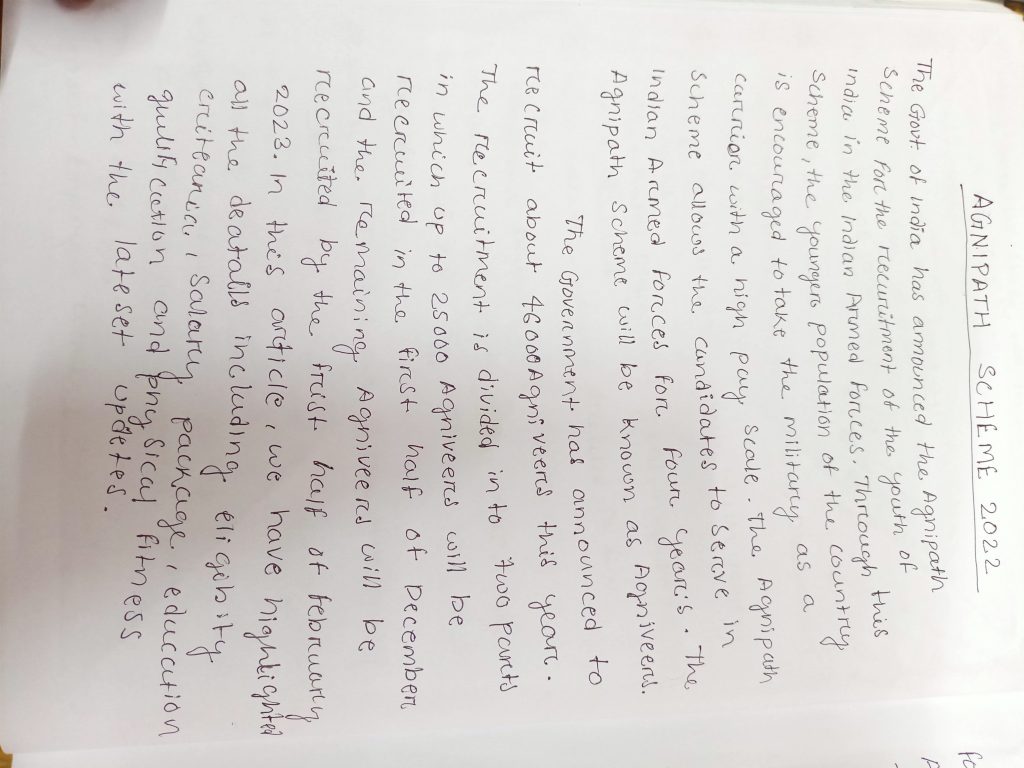 AGNIPATH SCHEME 2022
The Govt of India has announced the Agnipath
scheme for the recuritment of the youth of
India in the Indian Armed forces. Through this
scheme, the youngers population of the country
is encouraged to take the military as a
carrior with a high pay scale. The Agnipath
scheme allows the candidates to serve in
Indian Armed forces for four year's. The
Agnipath scheme will be known as Agniveers.
The Government has announced to
recruit about 46000 Agniveers this year.
The recruitment is divided into two parts
in which up to 25000 Agniveers will be
recruited in the first half of December
and the remaining Agniveers will be
recruited by the frist half of February
2023. In this article, we have highlighted
all the deatails including eligibity
criteraria, Salary package, education
qualification and phy sical fitness
with the lateset updetes.